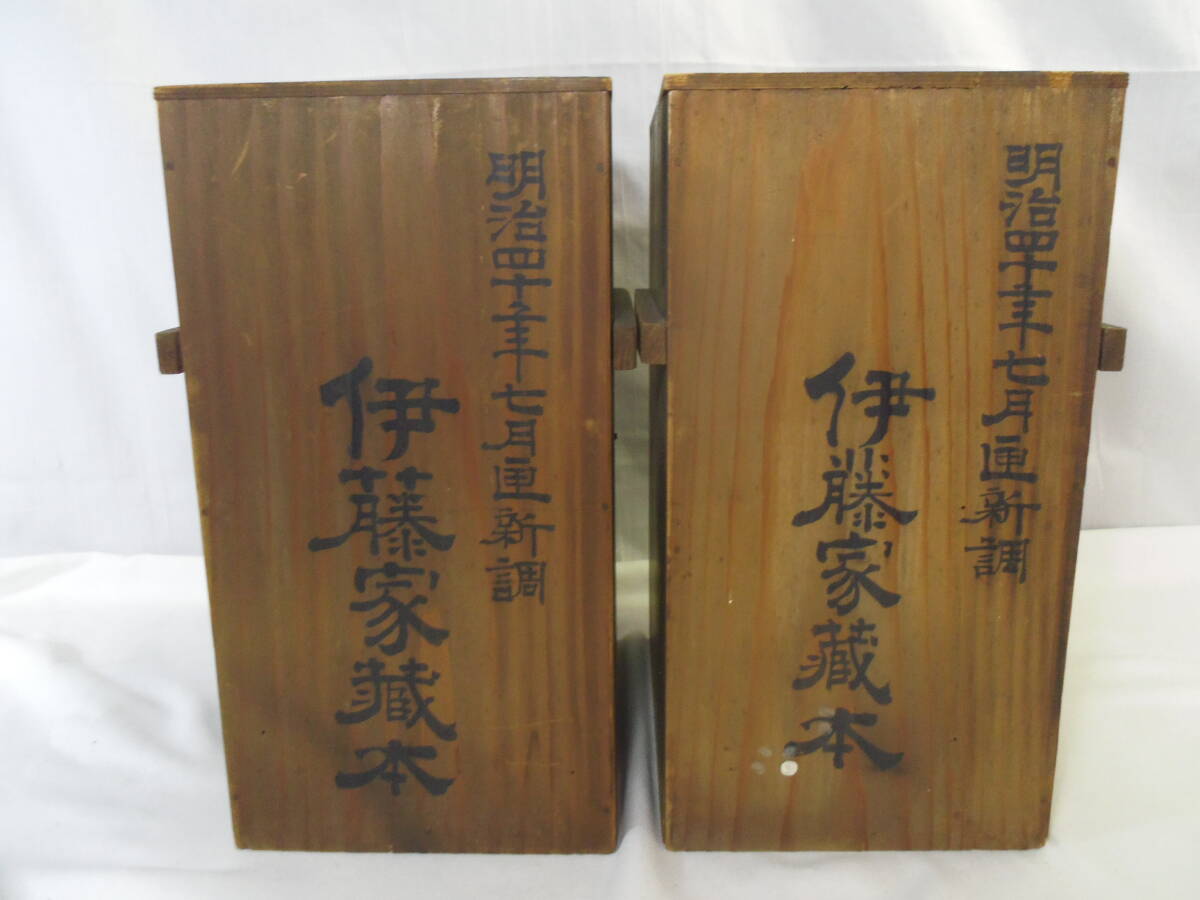 明治四十年七月匣新調
伊藤家藏本
明治四十年七月匣新調
伊藤家藏本